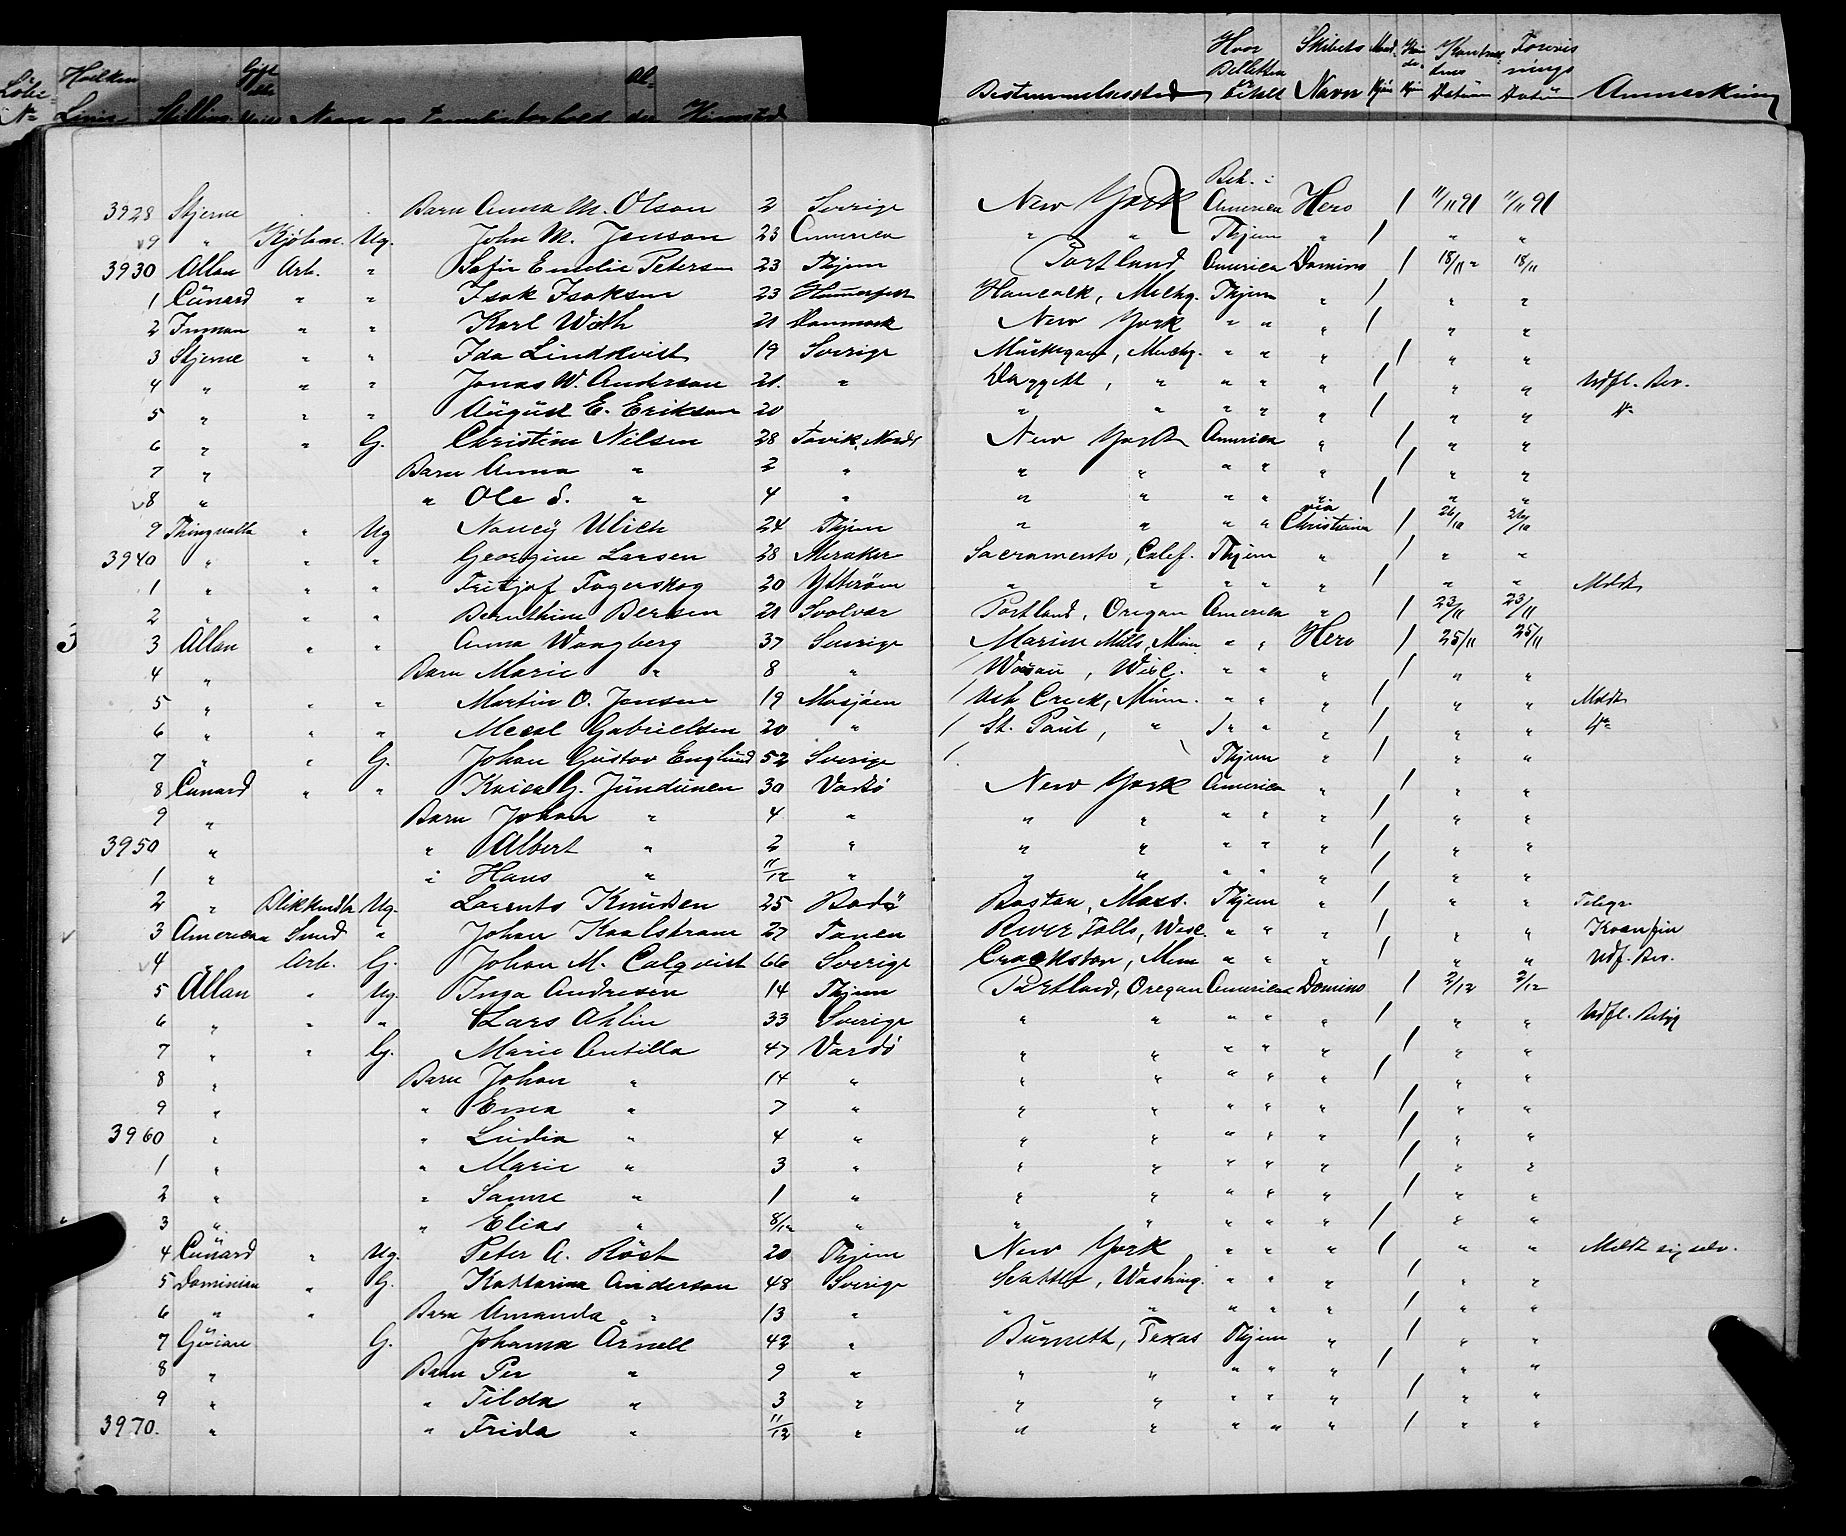 Løbe N° Hvilken Linie Stilling Gift Ugift Navn og Familieforhold Alder Hjemsted Bestemmelsessted Hvor Billetten er betalt Skibets Navn Mandkjøn Kvindekjøn Kontraktens Datum Forevisnings Datum Anmerkning
3928 Stjerne Barn Anna M. Olson 2 Sverige New York Bet. i America Hero / 11/11 91 11/11 91
9 " Kjøbm. Ug. John M. Jenson 23 America " " Thjem " / " "
3930 Allan Arb. " Sofie Emelie Petersen 23 Thjem Portland America Domino / 18/11 " 18/11
1 Cunard " " Isak Isaksen 23 Hammerfest Hancock, Michg. Thjem " / " "
2 Inman " " Karl With 21 Danmark New York " " " / " "
3 Stjerne " " Ida Lindkvist 19 Sverige Muskegan, Michg. " " " / " "
4 " " " Jonas W. Anderson 21. " Daggett, " " " " / " " Udfl. Bev.
5 " " " August E. Erikson 20 " " " " " / " " "
6 " " G. Christine Nilsen 28 Tovik, Nordl New York America " / " "
7 " Barn Anna " 2 " " " " " " / " "
8 " " Ole S. " 4 " " " " " " / " "
9 Thingvalla " Ug Nancy Ulich 24 Thjem " " " " via Christiania / 26/10 26/10
3940 " " " Georgine Larsen 28 Meraker Sacramento, Calef. Thjem " / " "
1 " " " Fritjof Fagerskog 20 Ytterøen " " " " " / " " Mdlt
2 " " " Bernthine Bersen 21 Svolvær Portland, Oregan America " / 23/11 23/11
3 Allan " " Anna Wangberg 37 Sverige Marine Mills, Minn. " " Hero / 25/11 25/11
4 " Barn Marie " 8 " Wausau, Wisc. " " " / " "
5 " " " Martin O. Jensen 19 Mosjøen Ash Creek, Minn. " " " / " " Mdlt
6 " " " Gabrielsen 20 " St. Paul, " " " " / " " "
7 " " G. Johan Gustav Englund 52 Sverige Thjem " / " "
8 Cunard " " G. Jundunen 30 Vardø New York America " / " "
9 " Barn Johan " 4 " " " " " " / " "
3950 " " Albert " 2 " " " " " " / " "
1 " " Hans " 11/12 " " " " " " / " "
2 " Ug. Lorents Knudsen 25 Bodø Bostan, Mass. Thjem " / " " Telegr.
3 American Smed " Johan Kaalstrøm 27 Tanen River Falls, Wisc. " " " / " "
4 " Arb. G. Johan M. Calqvist 66 Sverige Crookston, Minn " " " / " " Udf. Bev.
5 Allan " Ug. Inga Andresen 14 Thjem Portland, Oregan America Domino / 2/12 2/12
6 " " " Lars Ahlin 33 Sverige " " " " " / " " Udfl. Betyg
7 " " G. Marie Antilla 47 Vardø " " " " " / " "
8 " Barn Johan " 14 " " " " " " / " "
9 " " Erna " 7 " " " " " " / " "
3960 " " Ludia " 4 " " " " " " / " "
1 " " Marie " 3 " " " " " " / " "
2 " " Sanne " 1 " " " " " " / " "
3 " " Elias " 8/12 " " " " " " / " "
4 Cunard " Ug. Peter A. Röst 20 Thjem New York " " " / " " Mdlt sig selv.
5 Dominion " G. Kattarina Anderson 48 Sverige Seattle, Washing. " " " / " "
6 " " Barn Amanda " 13 " " " " " " / " "
7 Guion G. Johanna Arnell 42 " Burnett, Texas Thjem " / " "
8 " Barn Per " 9 " " " " " " / " "
9 " " Tilda " 3 " " " " " " / " "
3970. " " Frida " 11/12 " " " " " " / " "